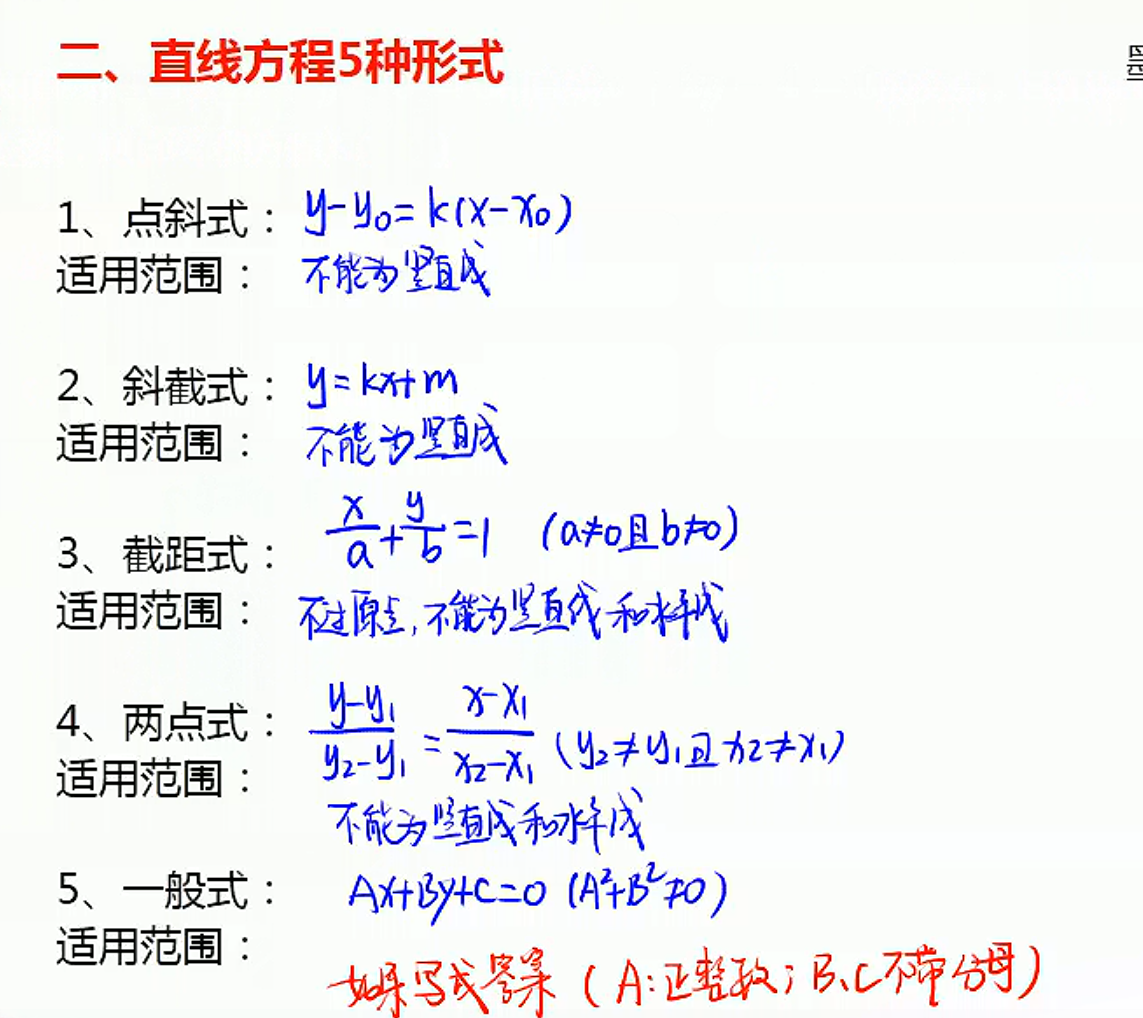 二、直线方程5种形式
1、点斜式： y-y₀=k(x-x₀)
适用范围： 不能为竖直线
2、斜截式： y=kx+m
适用范围： 不能为竖直线
3、截距式： x/a+y/b=1 (a≠0且b≠0)
适用范围： 不过原点,不能为竖直线和水平线
4、两点式： (y-y₁)/(y₂-y₁)=(x-x₁)/(x₂-x₁) (y₂≠y₁且x₂≠x₁)
适用范围： 不能为竖直线和水平线
5、一般式： Ax+By+C=0 (A²+B²≠0)
适用范围：
如果写成答案 (A:正整数;B、C不带分母)